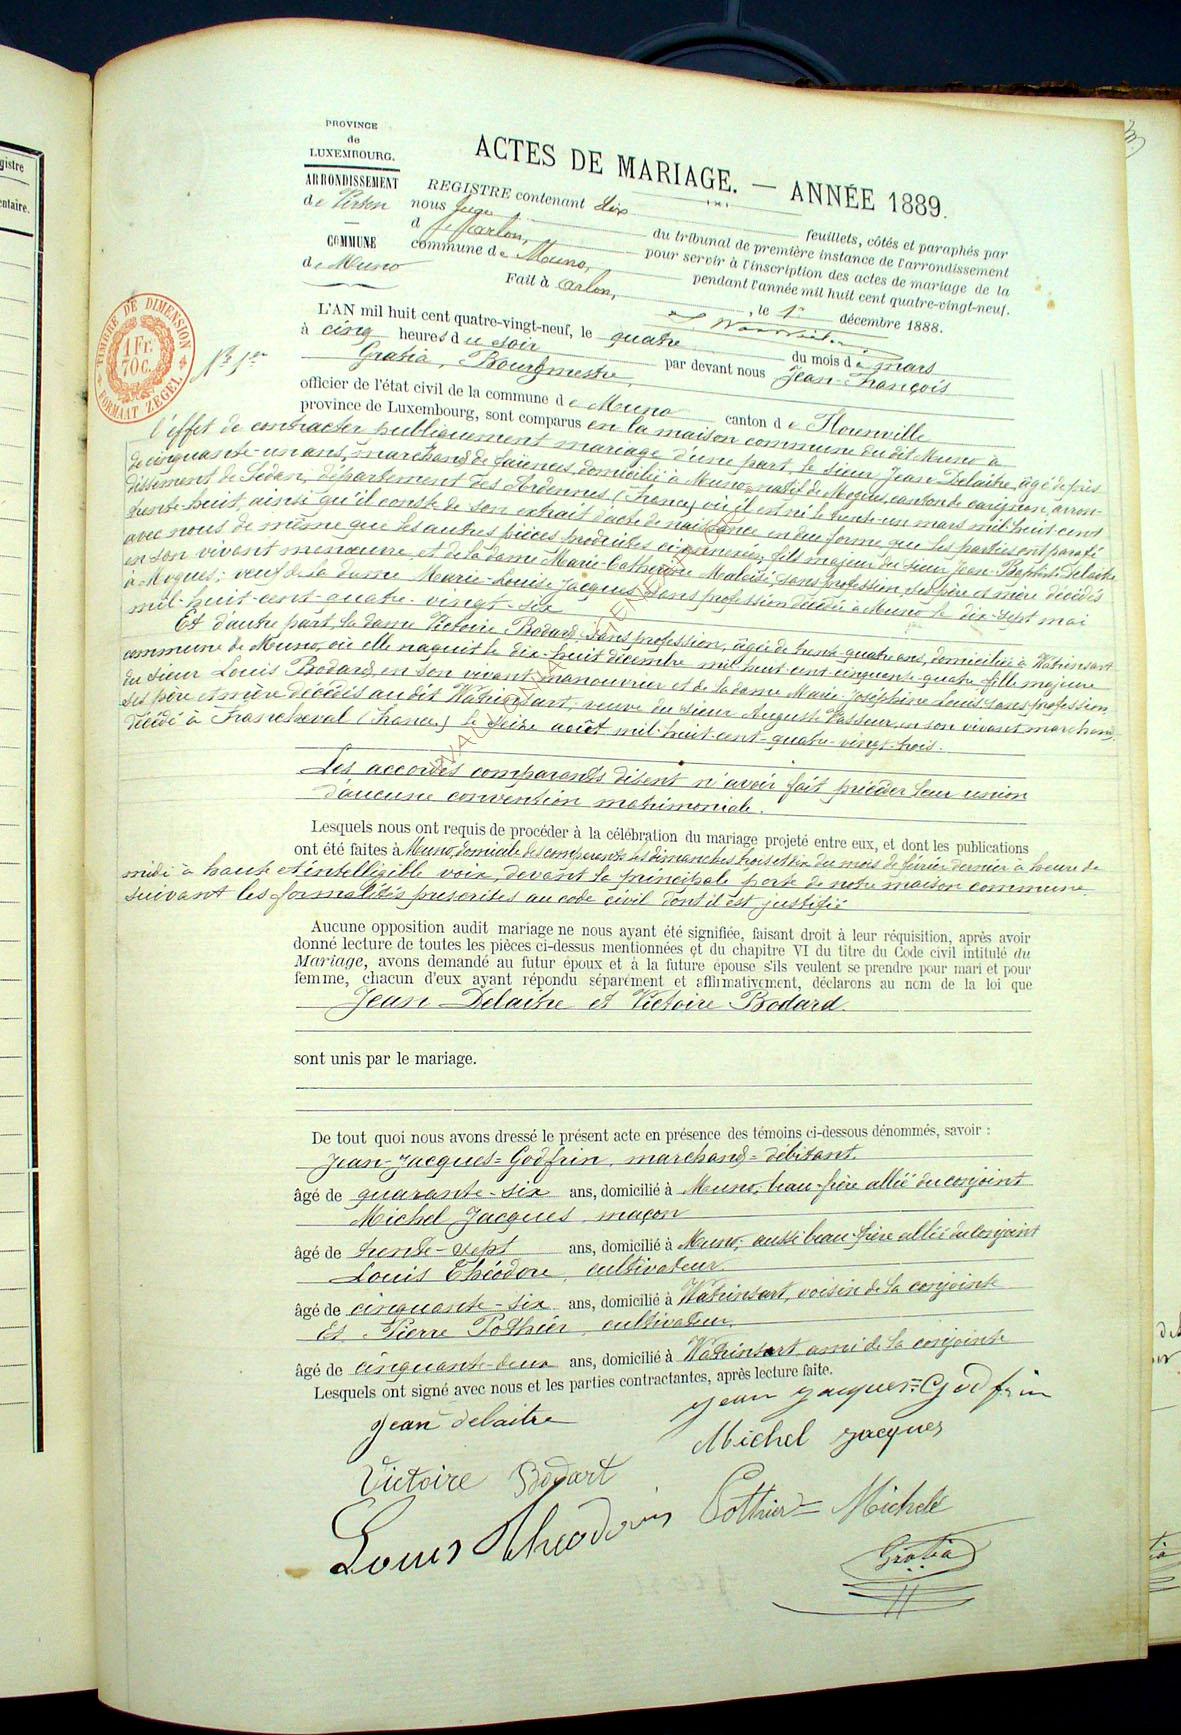 PROVINCE
de
LUXEMBOURG.
ARRONDISSEMENT
de Virton
COMMUNE
de Muno
ACTES DE MARIAGE. — ANNÉE 1889.
REGISTRE contenant dix feuillets, côtés et paraphés par
nous Juge du tribunal de première instance de l'arrondissement
d'Arlon, pour servir à l'inscription des actes de mariage de la
commune de Muno, pendant l'année mil huit cent quatre-vingt-neuf.
Fait à Arlon, , le 1er décembre 1888.
TIMBRE DE DIMENSION
1 Fr.
70 C.
FORMAAT ZEGEL
No 1er
L'AN mil huit cent quatre-vingt-neuf, le quatre du mois de mars
à cinq heures du soir par devant nous Jean-François
Gratia, Bourgmestre,
officier de l'état civil de la commune de Muno canton de Florenville
province de Luxembourg, sont comparus en la maison commune du dit Muno à
l'effet de contracter publiquement mariage d'une part, le sieur Jean Delaitre, âgé de près
de cinquante-un ans, marchand de faïences, domicilié à Muno, natif de Mogues, canton de Carignan, arron-
dissement de Sedan, département des Ardennes (France) où il est né le trente-un mars mil huit cent
trente-huit, ainsi qu'il conste de son extrait d'acte de naissance en due forme que les parties ont paraphé
avec nous de même que les autres pièces produites ci-annexées, fils majeur du sieur Jean-Baptiste Delaitre
en son vivant manœuvre et de la dame Marie-Catherine Malaise, sans profession, ses père et mère décédés
à Mogues; veuf de la dame Marie-Louise Jacques, sans profession décédée à Muno le dix-sept mai
mil-huit-cent-quatre-vingt-six
Et d'autre part, la dame Victoire Bodard, sans profession, âgée de trente-quatre ans, domiciliée à Watrinsart
commune de Muno, où elle naquit le dix-huit décembre mil-huit-cent-cinquante-quatre fille majeure
du sieur Louis Bodard, en son vivant manouvrier et de la dame Marie-Joséphine Louis, sans profession,
ses père et mère décédés au dit Watrinsart, veuve du sieur Auguste Vasseur, en son vivant marchand,
décédé à Francheval (France) le seize août mil-huit-cent-quatre-vingt-trois.
Les accordés comparants disent n'avoir fait précéder leur union
d'aucune convention matrimoniale.
Lesquels nous ont requis de procéder à la célébration du mariage projeté entre eux, et dont les publications
ont été faites à Muno, domicile des comparents les dimanches trois et dix du mois de février dernier à heure de
midi à haute et intelligible voix, devant la principale porte de notre maison commune
suivant les formalités prescrites au code civil dont il est justifié
Aucune opposition audit mariage ne nous ayant été signifiée, faisant droit à leur réquisition, après avoir
donné lecture de toutes les pièces ci-dessus mentionnées et du chapitre VI du titre du Code civil intitulé du
Mariage, avons demandé au futur époux et à la future épouse s'ils veulent se prendre pour mari et pour
femme, chacun d'eux ayant répondu séparément et affirmativement, déclarons au nom de la loi que
Jean Delaitre et Victoire Bodard.
sont unis par le mariage.
De tout quoi nous avons dressé le présent acte en présence des témoins ci-dessous dénommés, savoir :
Jean-Jacques=Godfrin, marchand-débitant.
âgé de quarante-six ans, domicilié à Muno, beau-frère allié du conjoint
Michel Jacques, maçon
âgé de trente-sept ans, domicilié à Muno, aussi beau-frère allié du conjoint
Louis Théodore, cultivateur
âgé de cinquante-six ans, domicilié à Watrinsart, voisin de la conjointe
Et Pierre Pothier, cultivateur.
âgé de cinquante-deux ans, domicilié à Watrinsart ami de la conjointe
Lesquels ont signé avec nous et les parties contractantes, après lecture faite.
Jean delaitre
Jean Jacques=Godfrin
Michel Jacques
Victoire Bodart
Louis Theodore
Pothier=Michel
Gratia